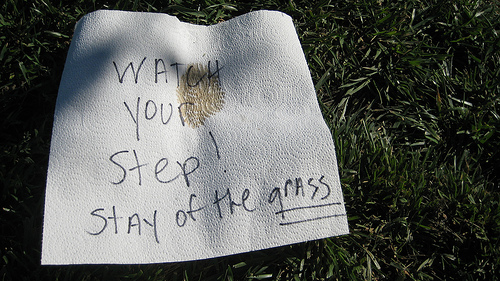 WATCH
your
Step!
Stay of the grass